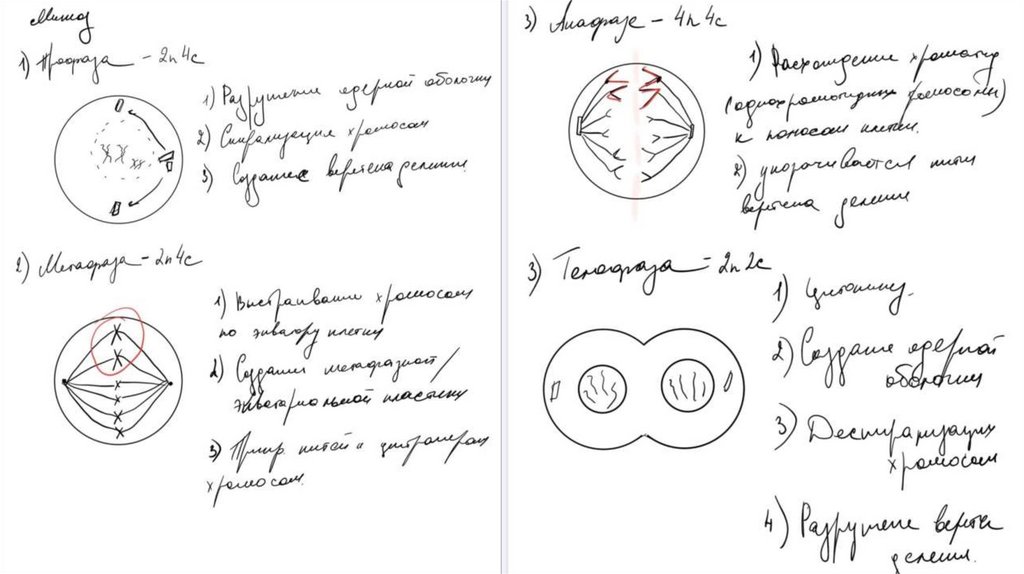 Митоз
1) Профаза - 2n4c
1) Разрушение ядерной оболочки
2) Спирализация хромосом
3) Создание веретена деления.
2) Метафаза - 2n4c
1) Выстраивание хромосом
по экватору клетки
2) Создание метафазной/
экваториальной пластинки
3) Прикр нитей к центромерам
хромосом.
3) Анафаза - 4n4c
1) Расхождение хроматид
(однохроматидных хромосом)
к полюсам клетки.
2) укорачиваются нити
веретена деления
3) Телофаза - 2n2c
1) Цитокинез.
2) Создание ядерной
оболочки
3) Деспирализация
хромосом
4) Разрушение веретена
деления.